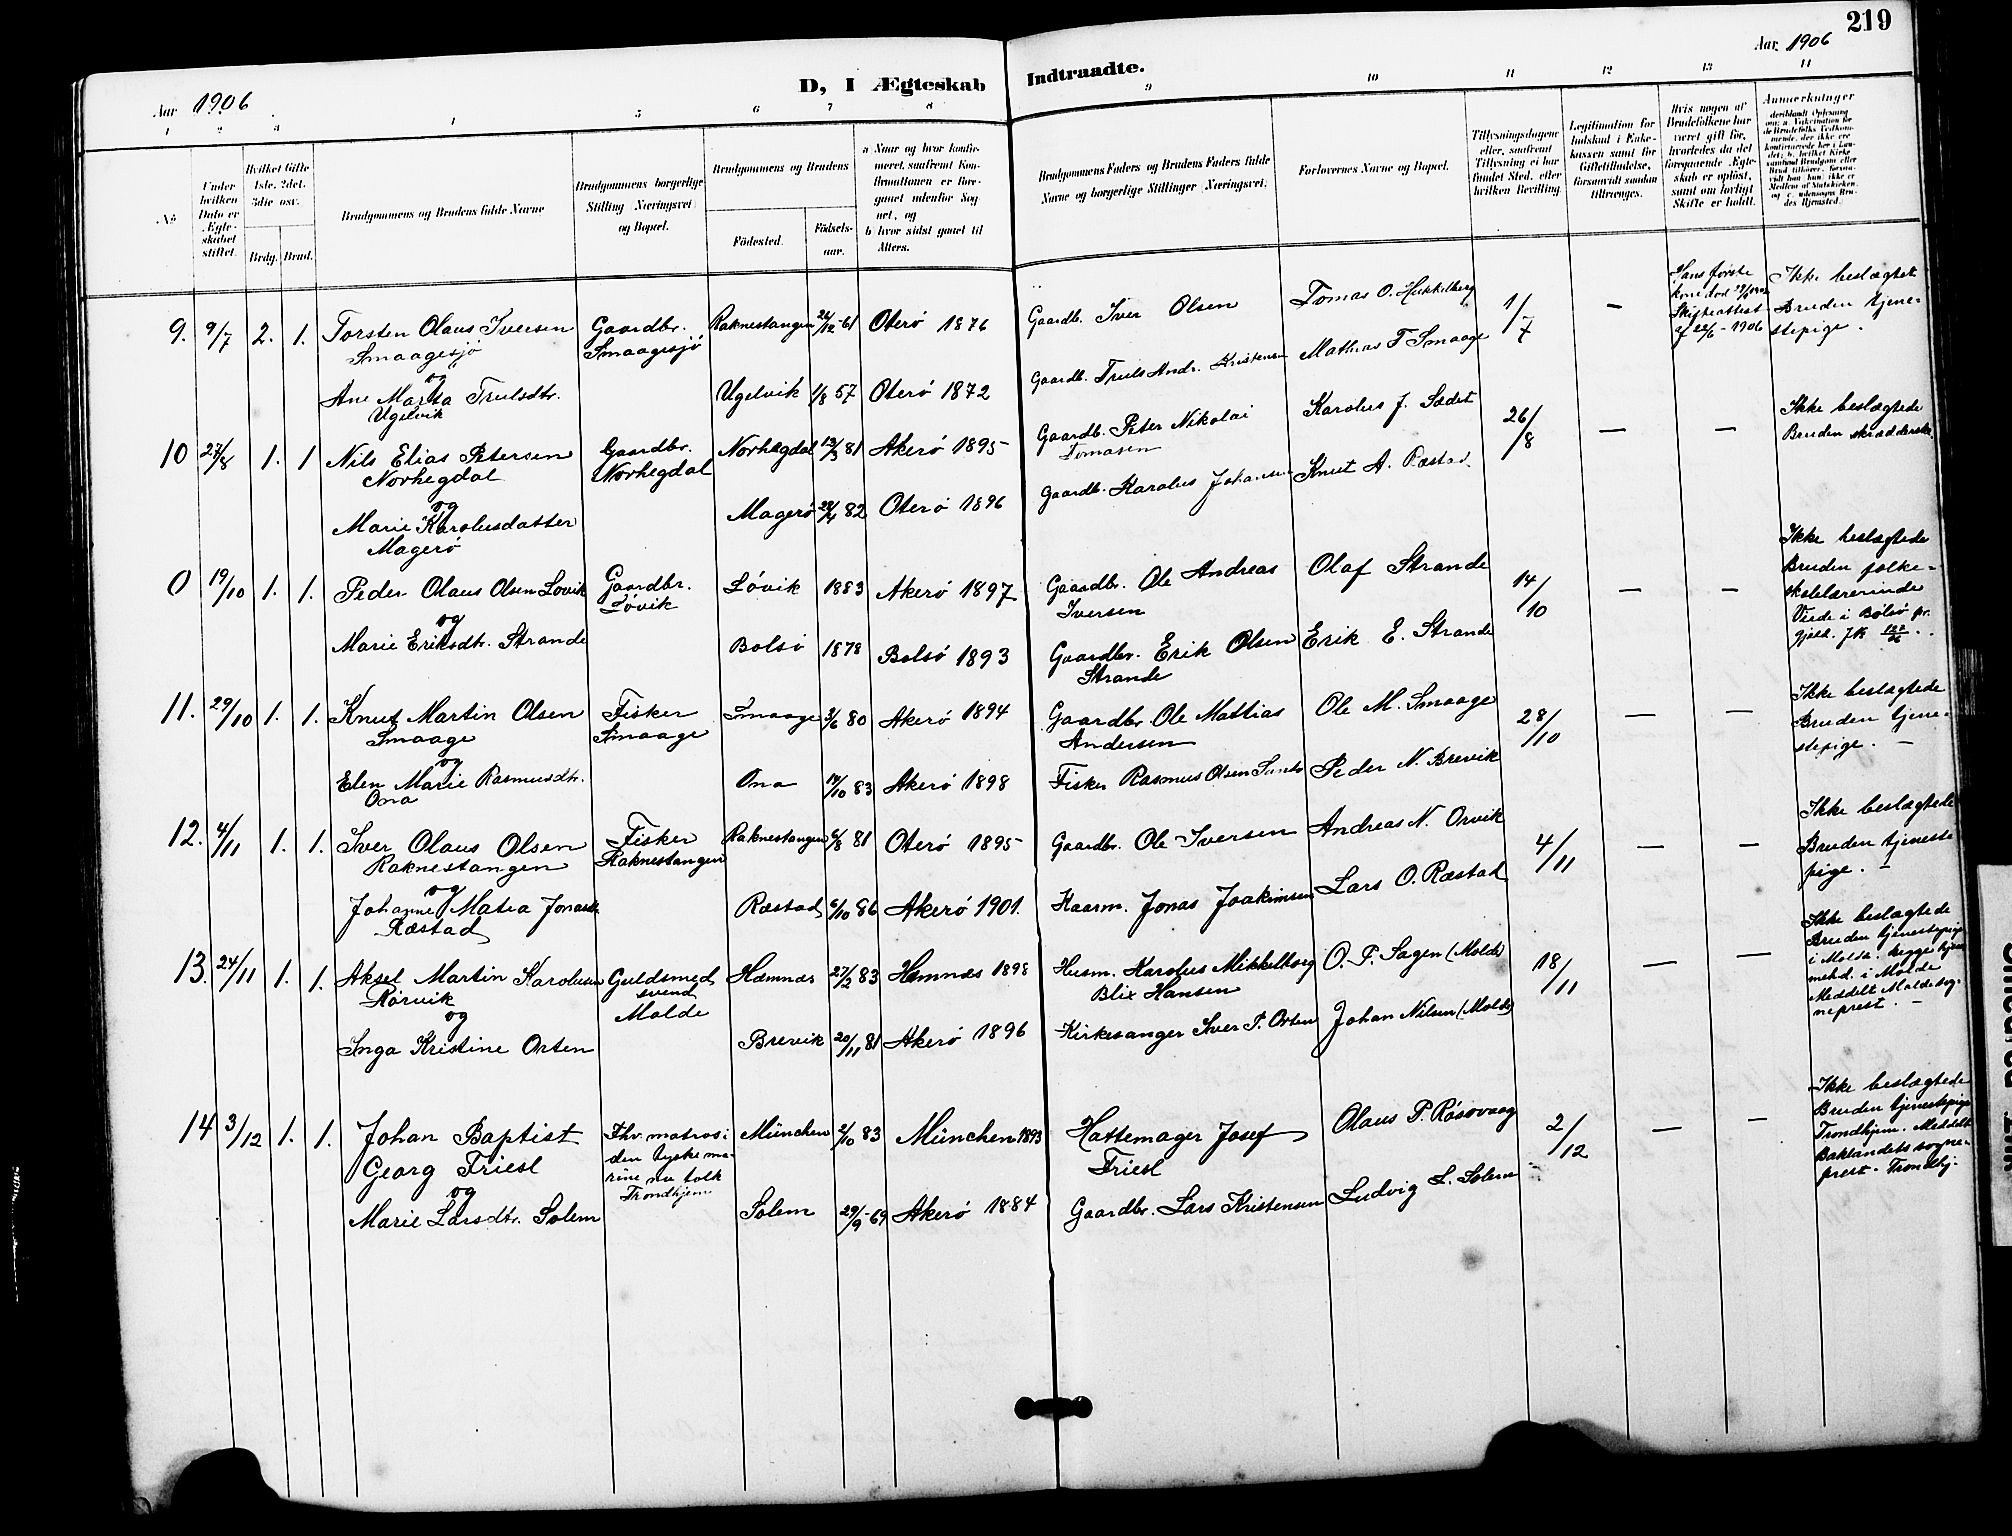 219
Aar 1906
D, I Ægteskab Indtraadte.
Aar 1906
1 2 3 4 5 6 7 8 9 10 11 12 13 14
No
Under hvilken Dato er Ægteskabet stiftet.
Hvilket Gifte 1ste, 2det, 3die osv.
Brdg. Brud.
Brudgommens og Brudens fulde Navne
Brudgommens borgerlige Stilling (Næringsvei) og Bopæl.
Brudgommens og Brudens
Fødested.
Fødselsaar.
a Naar og hvor konfirmeret, saafremt Konfirmationen er foregaaet udenfor Sognet, og
b hvor sidst gaaet til Alters.
Brudgommens Faders og Brudens Faders fulde Navne og borgerlige Stillinger (Næringsvei).
Forlovernes Navne og Bopæl.
Tillysningsdagene eller, saafremt Tillysning ei har fundet Sted, efter hvilken Bevilling.
Legitimation for Indskud i Enkekassen samt for Giftetilladelse, forsaavidt saadan tiltrænges.
Hvis nogen af Brudefolkene har været gift før, hvorledes da det foregaaende Ægteskab er opløst, samt om lovligt Skifte er holdt.
Anmærkninger
9. 9/7 2. 1. Torsten Olaus Iversen Smaagesjö
Gaardbr. Smaagesjö
Raknestangen 24/12-61 Oterö 1876
Gaardb. Iver Olsen
Tomas O. Hukkelberg
1/7 –
Hans første kone død 1902 Skifteattest af 22/6-1906
Ikke beslægtet Bruden tjenestepige.
og
Ane Marta Trulsdtr. Ugelvik
Ugelvik 1/8 57 Oterö 1872
Gaardb. Truls Andr. Kristensen
Mathias T Smaage
10 27/8 1. 1 Nils Elias Petersen Norhegdal
Gaardbr. Norhegdal
Norhegdal 13/3 81 Akerö 1895
Gaardb. Peter Nikolai Tomasen
Karolus J. Sædet
26/8 – –
Ikke beslægtede Bruden skrædderske
og
Marie Karolusdatter Magerö
Magerö 28/4 82 Oterö 1896
Gaardbr. Karolus Johansen
Knut A. Ræstad
0 19/10 1. 1. Peder Olaus Olsen Lovik
Gaardbr. Lövik
Lövik 1883 Akerö 1897
Gaardbr. Ole Andreas Iversen
Olaf Strande
14/10 – –
Ikke beslægtede Bruden folkeskolelærerinde Viede i Bolsö pr.gjeld.
og
Marie Eriksdtr. Strande
Bolsö 1878 Bolsö 1893
Gaardbr. Erik Olsen Strande
Erik E. Strande
11. 29/10 1. 1. Knut Martin Olsen Smaage
Fisker Smaage
Smaage 3/6 80 Akerö 1894
Gaardbr Ole Mattias Andersen
Ole M. Smaage
28/10 – –
Ikke beslægtede Bruden tjenestepige. –
og
Elen Marie Rasmusdtr. Ona
Ona 19/10 83 Akerö 1898
Fisker Rasmus Olsen
Peder N. Brevik
12. 4/11 1. 1. Iver Olaus Olsen Raknestangen
Fisker Raknestangen
Raknestangen 6/8 81 Oterö 1895
Gaardbr. Ole Iversen
Andreas N. Orvik
4/11 – –
Ikke beslægtede Bruden tjenestepige. –
og
Johanne Matea Jonasdtr Ræstad
Ræstad 6/10 86 Akerö 1901.
Kaarm. Jonas Joakimsen
Lars O. Ræstad
13. 24/11 1. 1. Aksel Martin Karolusen Rörvik
Guldsmedsvend Molde
Hemnæs 27/2 83 Hemnæs 1898
Husm. Karolus Mikkelborg Blix Hansen
O. P. Sagen (Molde)
18/11 – –
Ikke beslægtede Bruden tjenestepige i Molde. begge hjemmehd. i Molde Meddelt Molde sogneprest. –
og
Inga Kristine Orten
Brevik 20/11 81 Akerö 1896
Kirkesanger Iver P. Orten
Johan Nilsen (Molde)
14 3/12 1. 1. Johan Baptist Georg Friesl
Fhv. matros i den tyske marine nu tolk Trondhjem
München 2/10 83 München 1893
Hattemager Josef Friesl
Olaus P. Rösovaag
2/12 – –
Ikke beslægtede Bruden tjenestepige Trondhjem. Meddelt Baklandets sogneprest. Trondhj.
og
Marie Larsdtr. Solem
Solem 29/9-69 Akerö 1884
Gaardbr. Lars Kristensen
Ludvig L. Solem